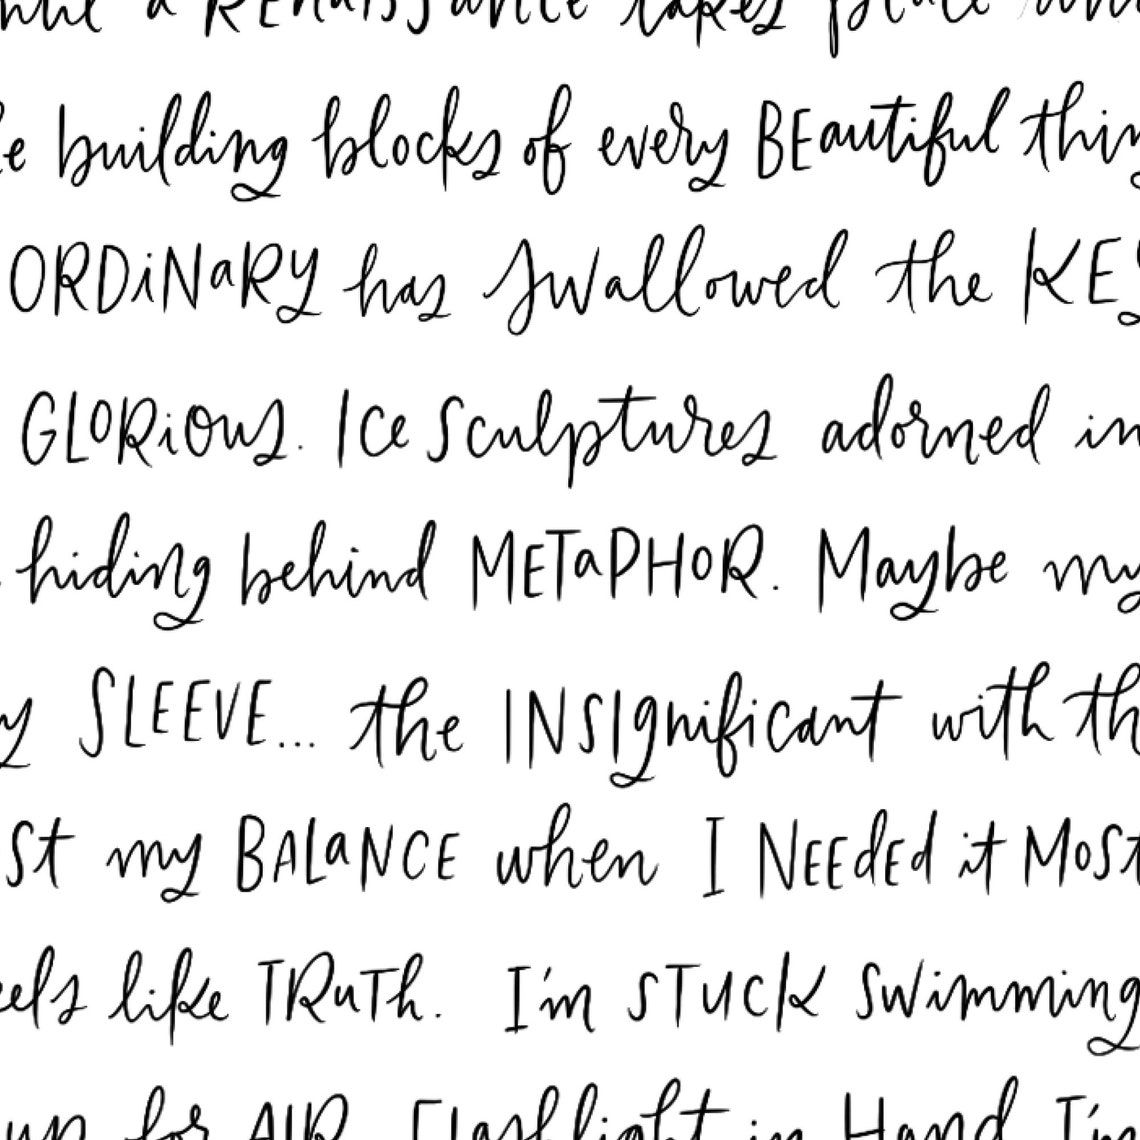 a RENaISSance takes place
building blocks of every BEautiful
ORDiNaRY has swallowed the
GLORiOus. Ice Sculptures adorned
hiding behind METaPHOR. Maybe my
SLEEVE... the INSIgnificant with
my BALaNCE when I NEEdEd it MOST
like TRuTh. I'm STUCK Swimming
for AIR. Flashlight in Hand. I'm